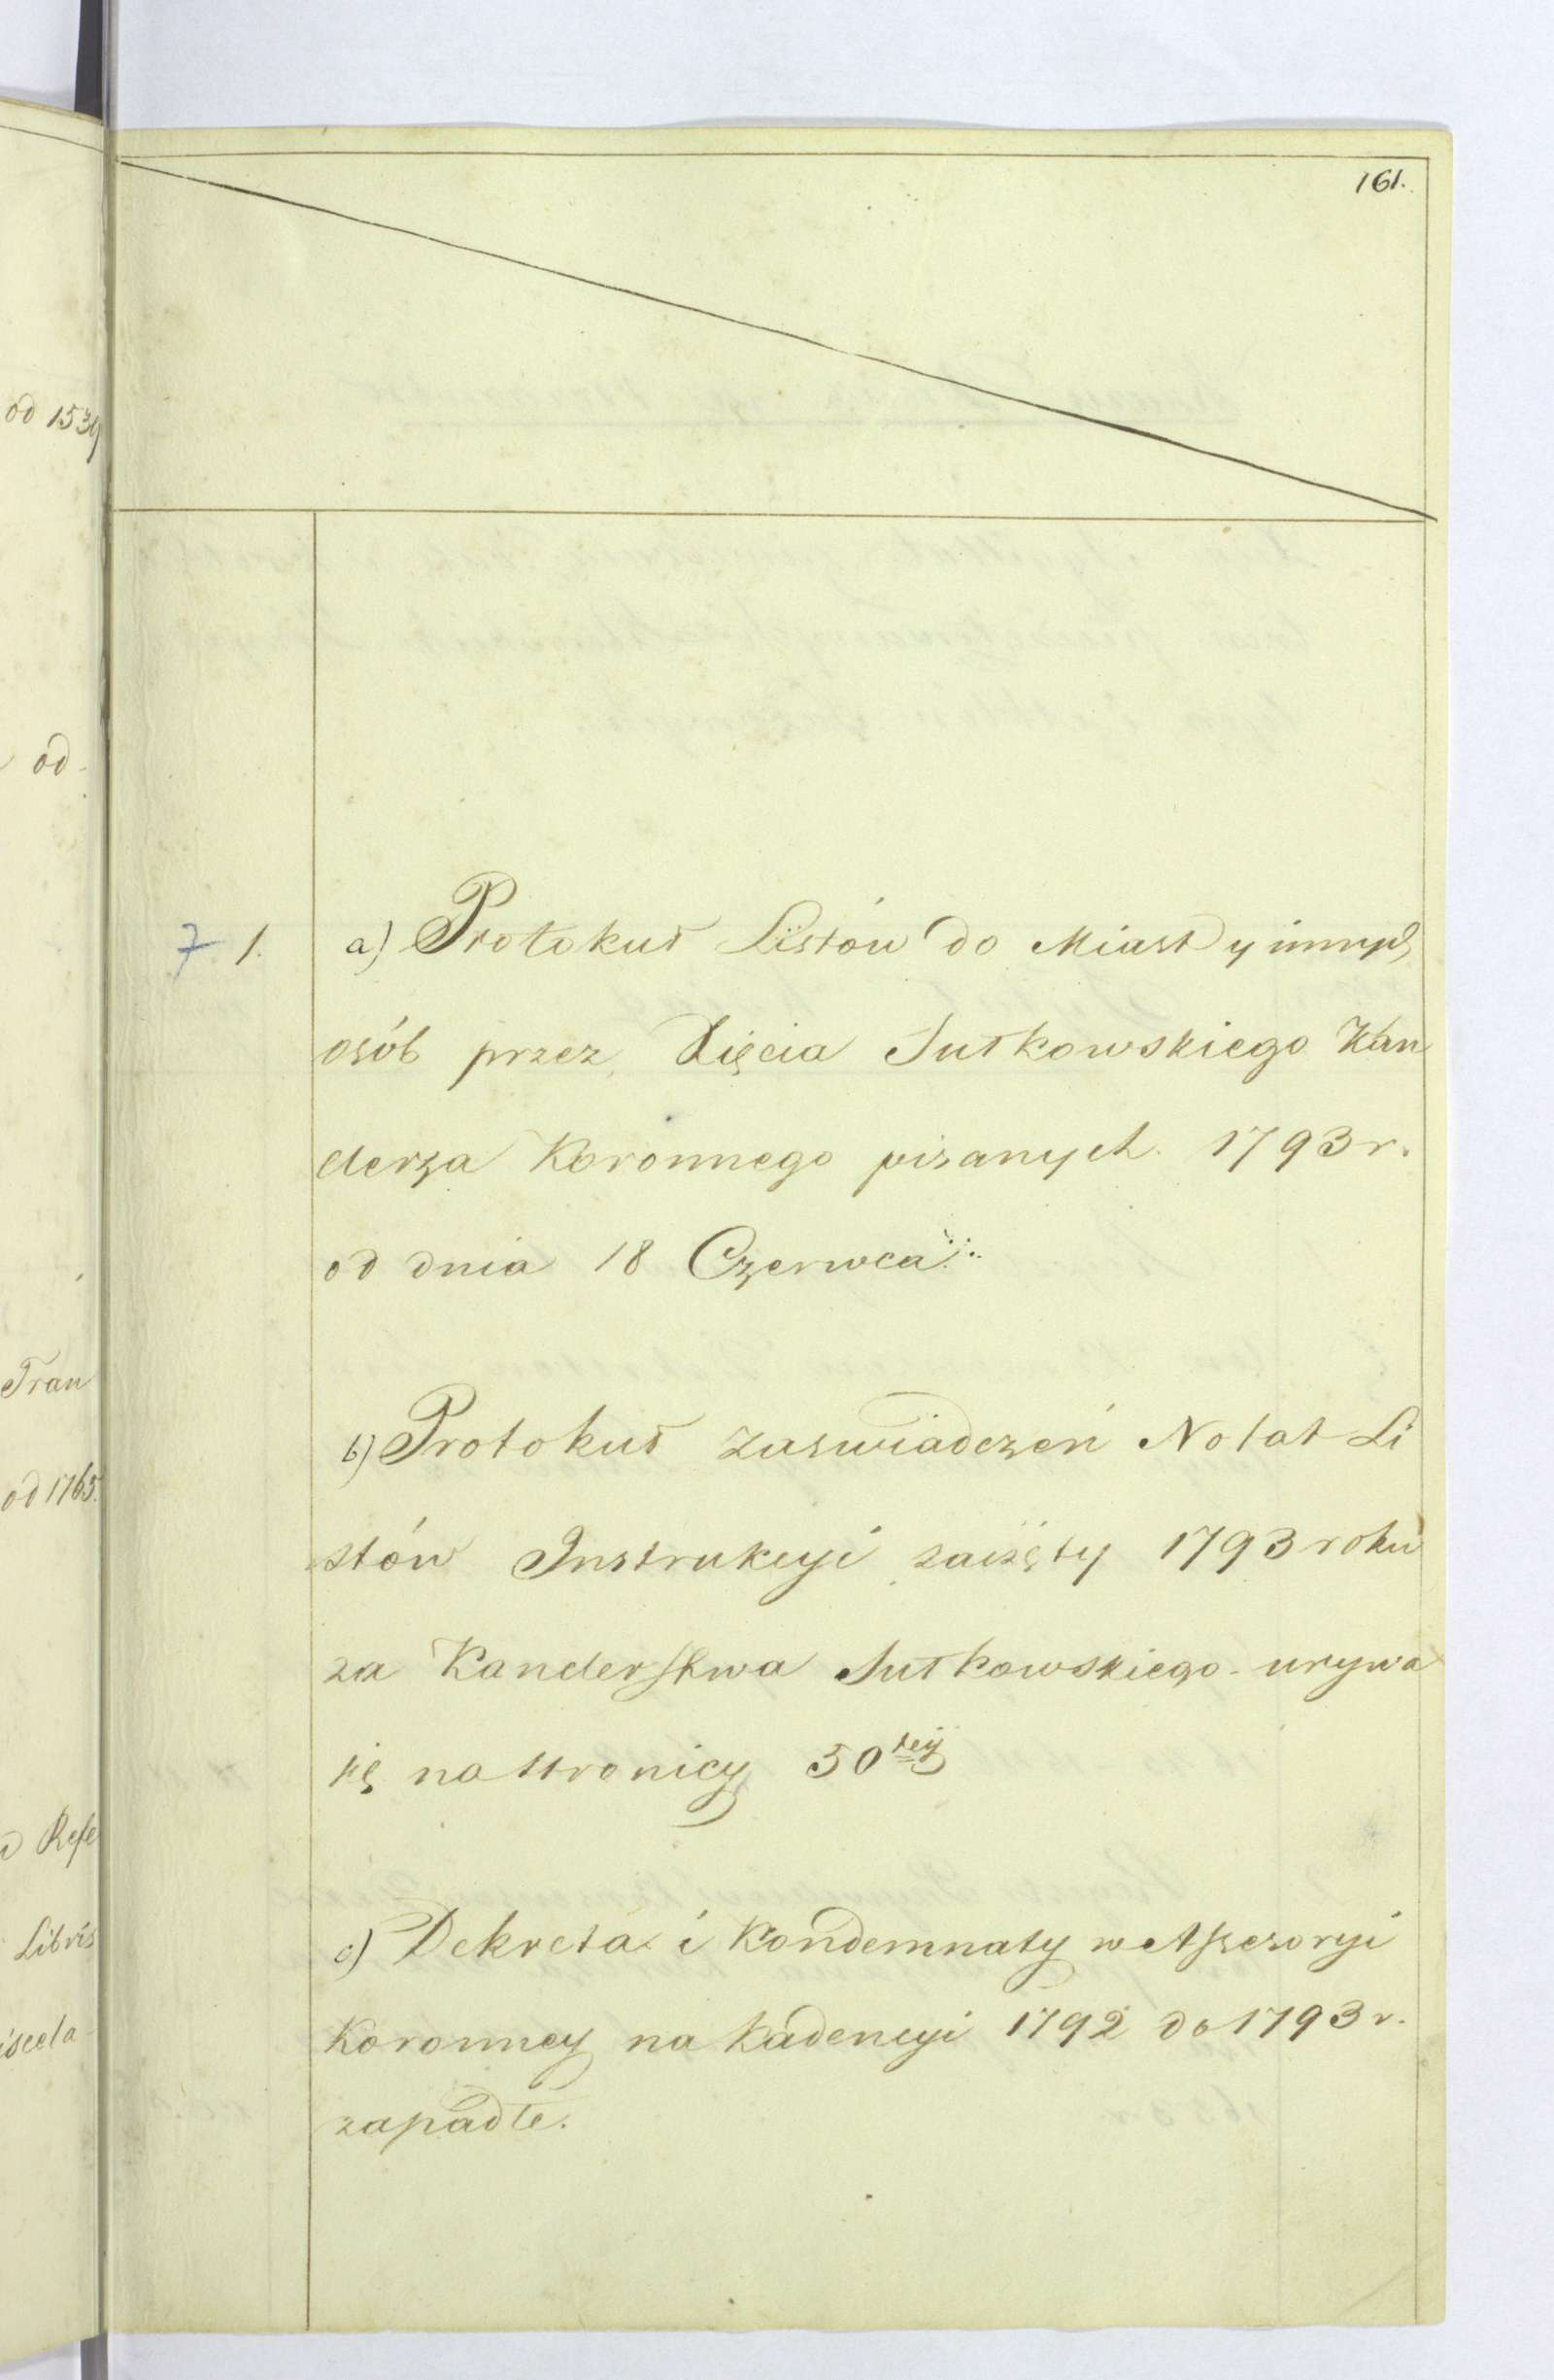 161.
od 1539
od
Tran
od 1765.
Refe
Libris
7 1. a) Protokuł Listów do Miast y innych
osób przez Xięcia Sułkowskiego Kan
clerza Koronnego pisanych. 1793 r.
od dnia 18 Czerwca
b) Protokuł zaswiadczeń Notat Li
stów Instrukcyi zaczęty 1793 roku
za Kanclerstwa Sułkowskiego urywa
się na stronicy 50tey
c) Dekreta i Kondemnaty w Assessoryi
Koronney na Kadencyi 1792 do 1793 r.
zapadłe.